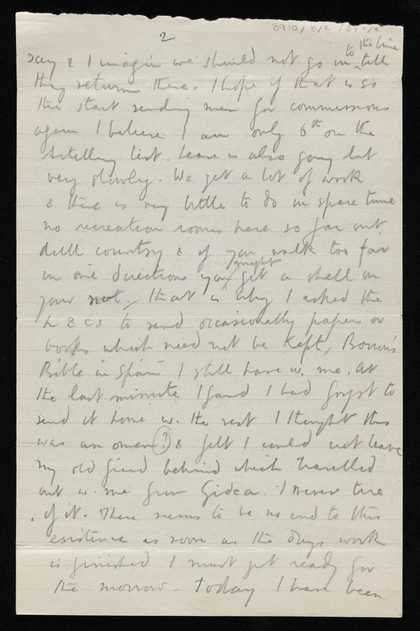 2
say & I imagine we should not go in to the line till
they return there. I hope if that is so
they start sending men for commissions
again I believe I am only 6th on the
Artillery list. Leave is also going but
very slowly. We get a lot of work
& there is very little to do in spare time
no recreation rooms here so far out.
dull country & if you walk too far
in one direction you might get a shell on
your nut. That is why I asked the
to send occasionally papers or
books which need not be kept. Borrow's
Bible in Spain I still have w. me. At
the last minute I found I had forgot to
send it home w. the rest I thought this
was an omen (?) & felt I could not leave
my old friend behind which travelled
out w. me from Gidea. I never tire
of it. There seems to be no end to this
existence as soon as the days work
is finished I must get ready for
the morrow. Today I have been